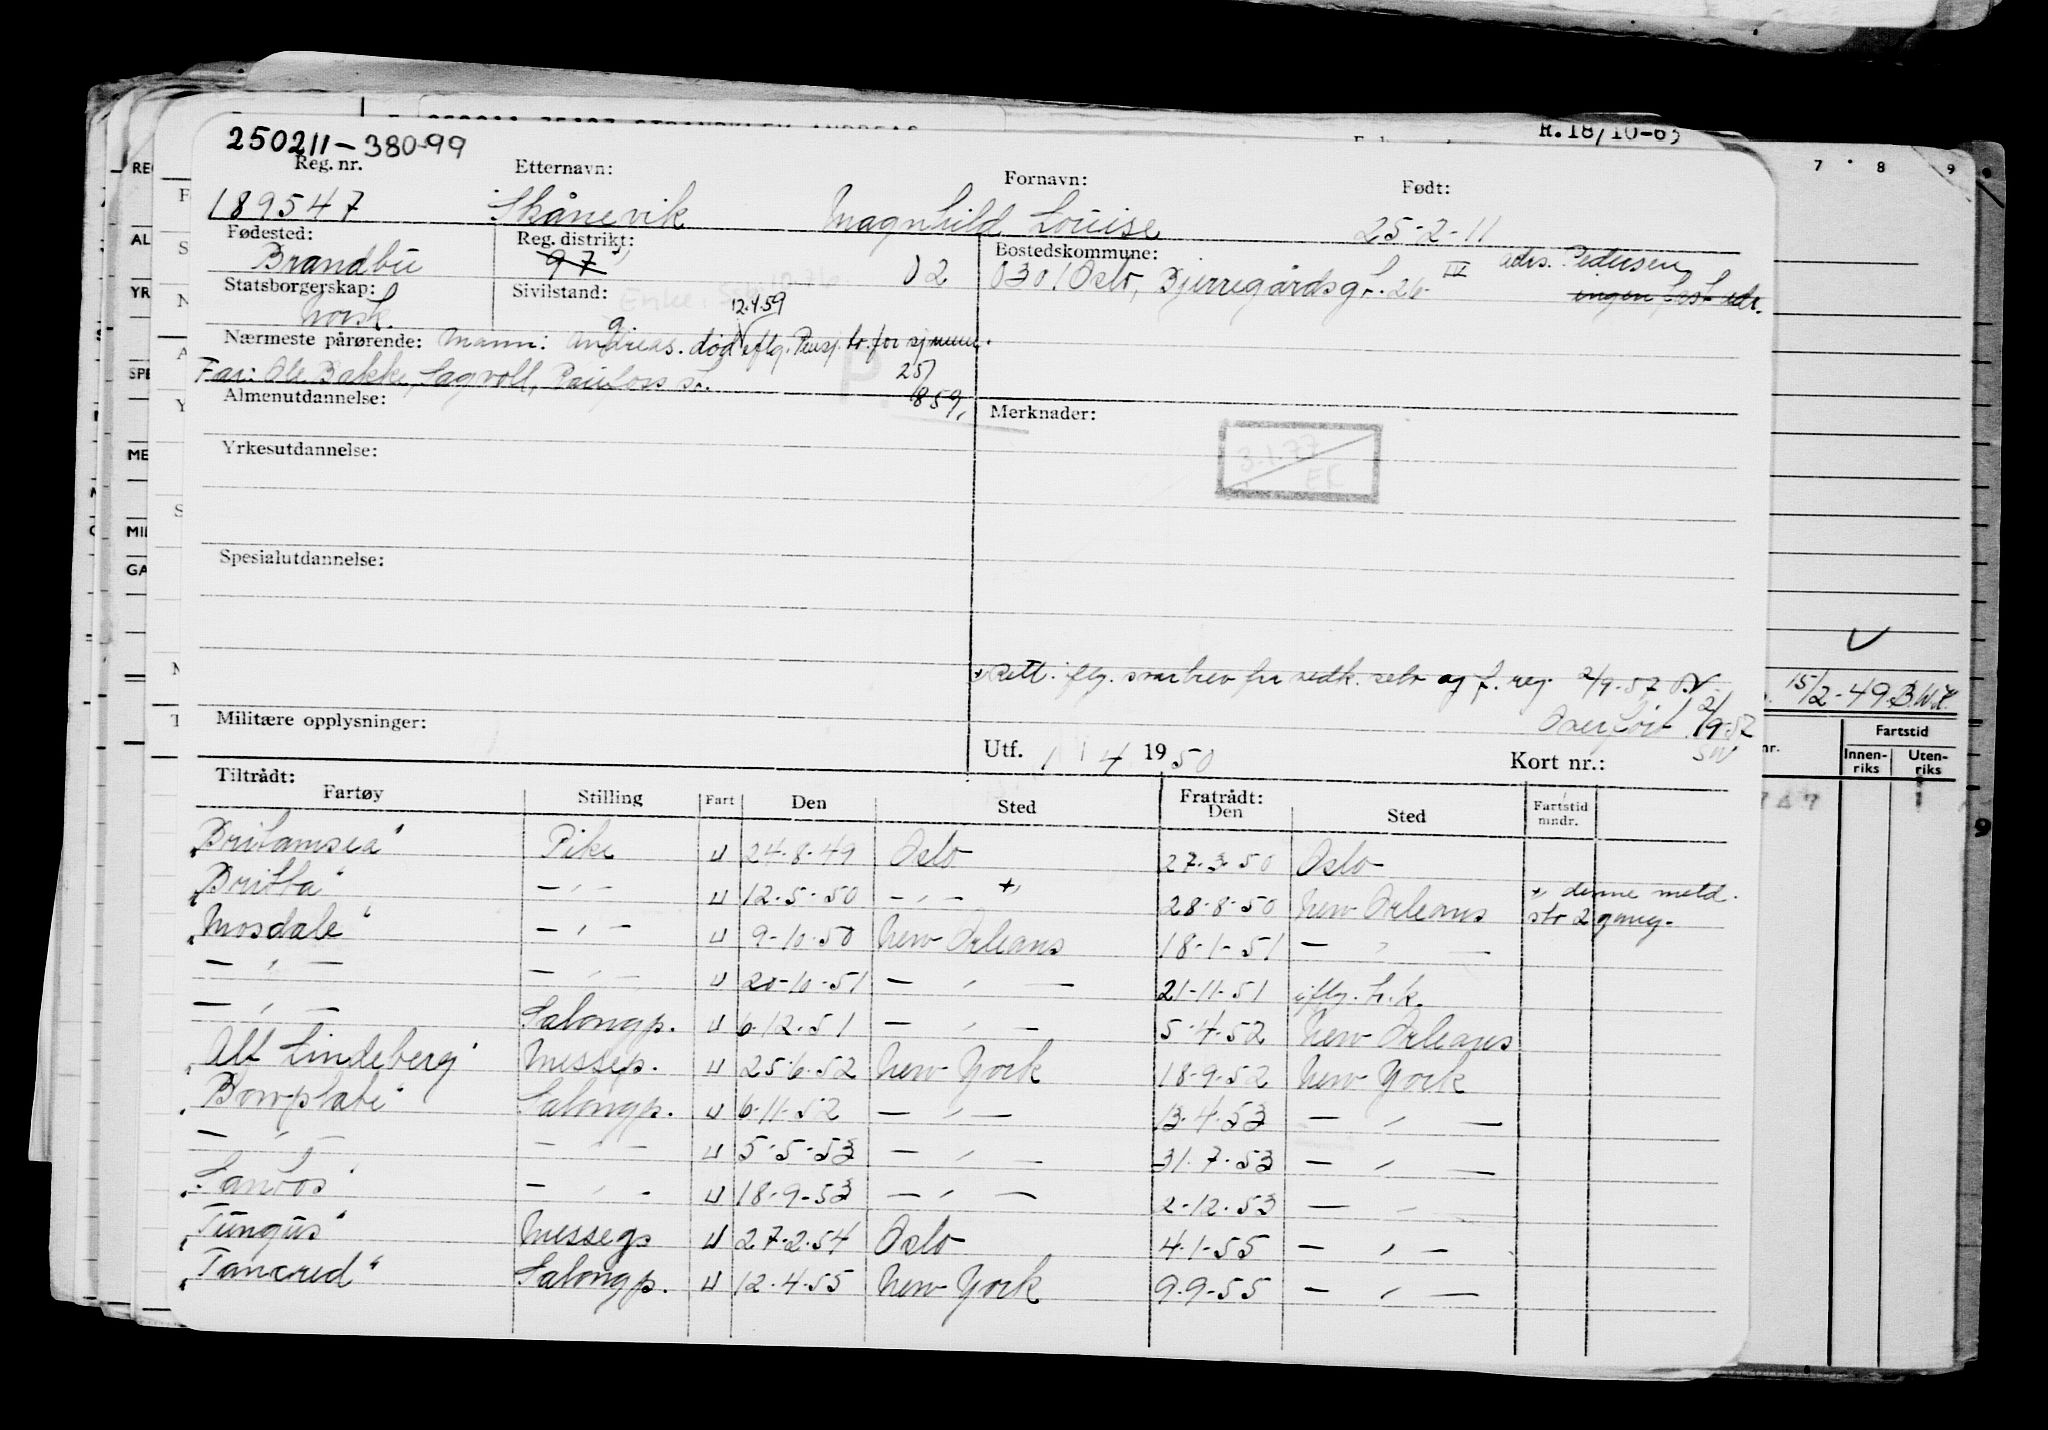 R.18/10-63
250211-380-99
Reg. nr. Etternavn: Fornavn: Født:
189547 Skånevik Magnhild Louise 25-2-11
Fødested: Reg. distrikt: Bostedskommune:
Brandbu 97 02 0301 Oslo, Bjerregårdsgt. 26 IV adr. Pedersen
Statsborgerskap: Sivilstand: ingen fast adr.
Norsk. 12.4.59
Nærmeste pårørende: Mann: Andreas. død iflg. Pensj. tr. for sjømenn.
Far: Ole Bakke, Sagvoll, Raufoss st. 25/
Almenutdannelse: 859, Merknader:
3.1.77
EK
Yrkesutdannelse:
Spesialutdannelse:
Rett. iflg. svarbrev fra vedk. selv og f. reg. 2/9-57
Overført 2/9-57
Militære opplysninger:
Utf. 1 4 1950 Kort nr.:
Tiltrådt: Fratrådt:
Fartøy Stilling Fart Den Sted Den Sted Fartstid mndr.
"Britamsea" Pike U 24-8-49 Oslo 27.3.50 Oslo
"Britta" —〃— U 12-5-50 —〃— +, 28-8-50 New Orleans +, denne meld.
"Mosdale" —〃— U 9-10-50 New Orleans 18-1-51 —〃— str 2 gang.
—〃— —〃— U 20-10-51 —〃— 21-11-51 iflg. h.k.
—〃— Salongp. U 6-12-51 —〃— 5-4-52 New Orleans
"Alf Lindeberg" Messep. U 25-6-52 New York 18-9-52 New York
"Bowplate" Salongp. U 6-11-52 —〃— 13-4-53 —〃—
—〃— —〃— U 5-5-53 —〃— 31.7.53 —〃—
"Sanfos" —〃— U 18-9-53 —〃— 2-12-53 —〃—
"Tungus" Messegs U 27-2-54 Oslo 4-1-55 —〃—
"Tancred" Salongp. U 12-4-55 New York 9-9-55 —〃—
7 8 9
15/2-49
Fartstid
Innenriks Utenriks